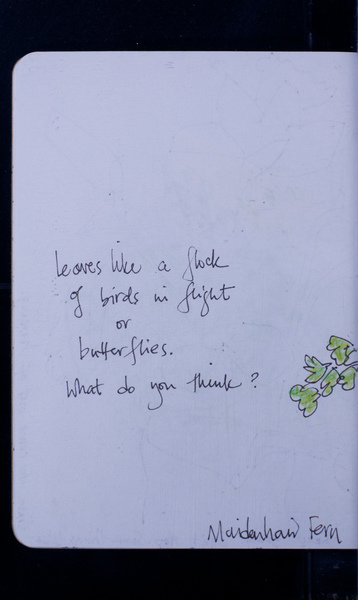 leaves like a flock
of birds in flight
or
butterflies.
What do you think?
Maidenhair Fern